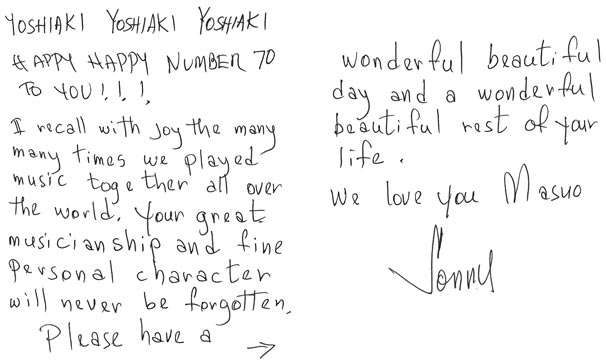 YOSHIAKI YOSHIAKI YOSHIAKI
HAPPY HAPPY NUMBER 70
TO YOU!!!,
I recall with joy the many
many times we played
music together all over
the world. Your great
musicianship and fine
personal character
will never be forgotten.
Please have a →
wonderful beautiful
day and a wonderful
beautiful rest of your
life.
We love you Masuo
Sonny